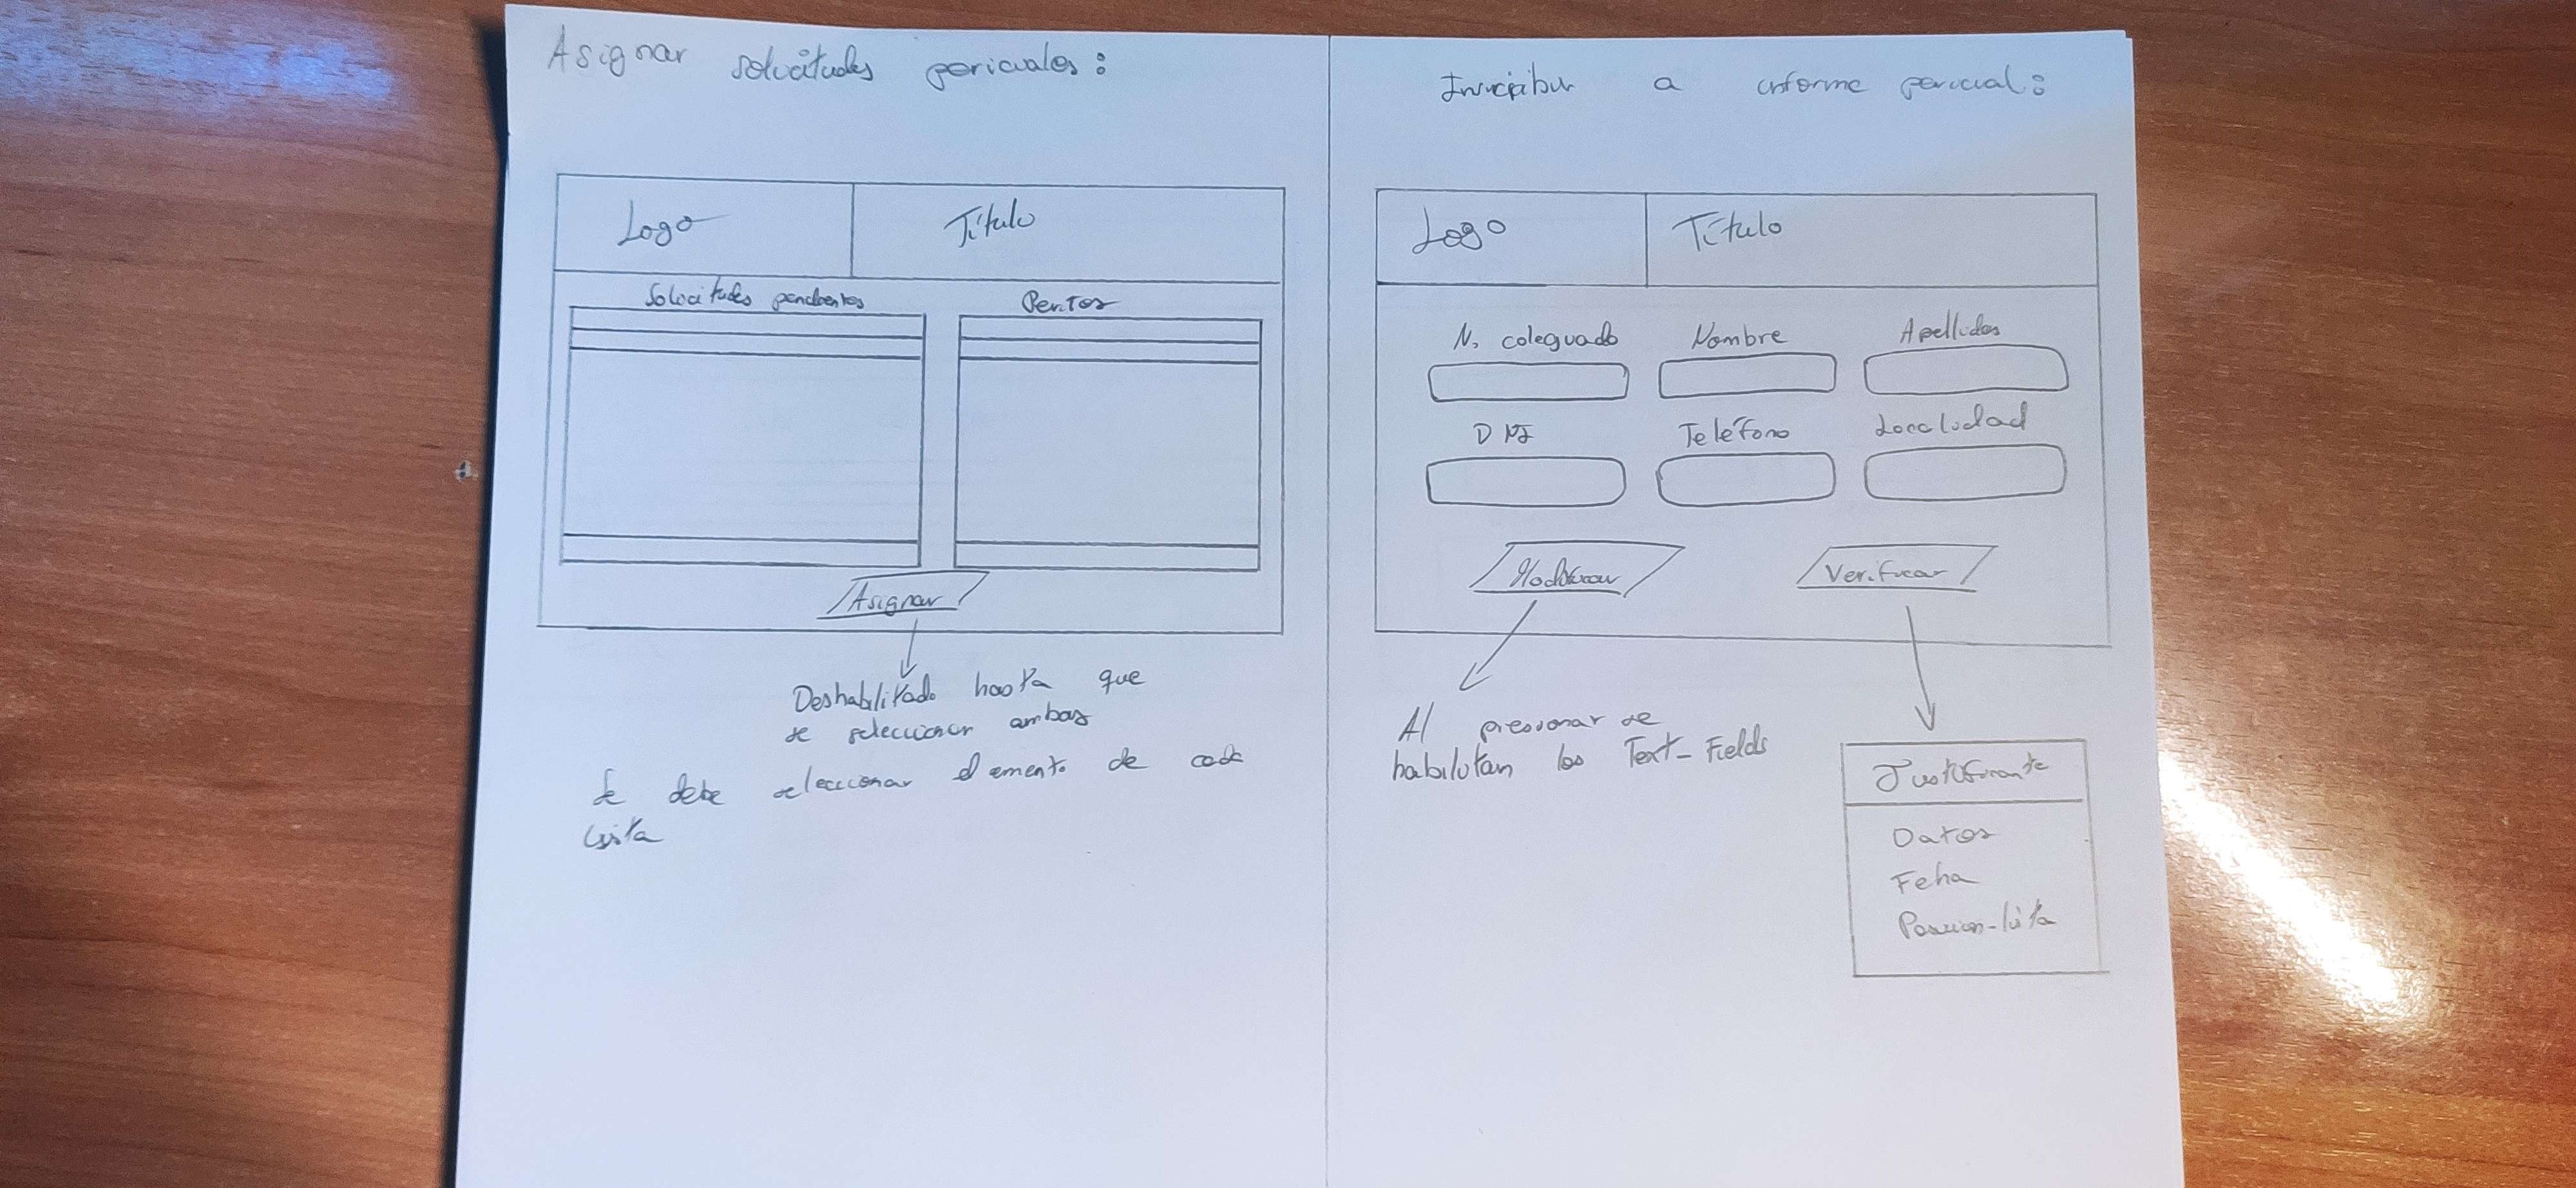 Asignar solicitudes periciales:
Logo
Título
Solicitudes pendientes
Peritos
Asignar
Deshabilitado hasta que
se seleccionar ambas
Se debe seleccionar elemento de cada
lista
Inscribir a informe pericial:
Logo
Título
N. colegiado
Nombre
Apellidos
DNI
Teléfono
Localidad
Modificar
Verificar
Al presionar se
habilitan los Text-Fields
Justificante
Datos
Feha
Posicion-lista